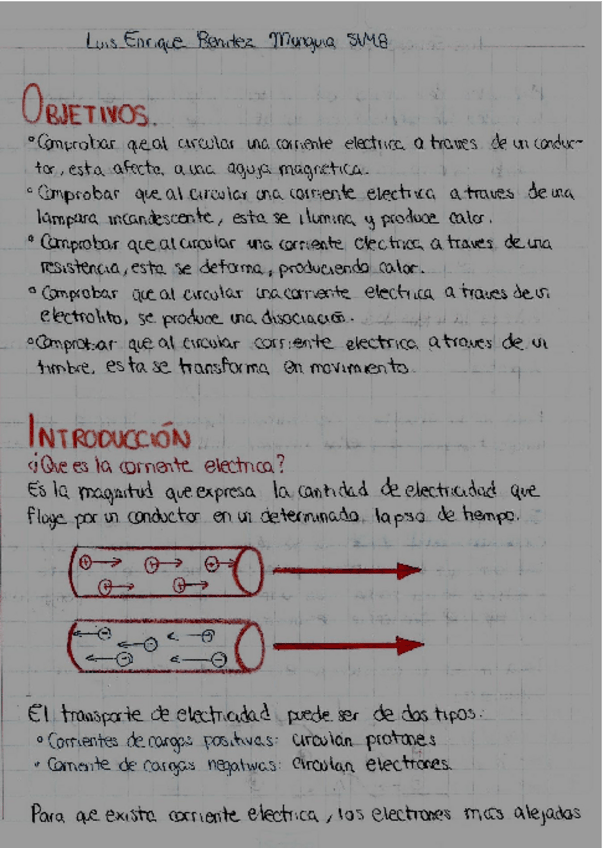 Luis Enrique Benitez Munguia 5IM8
OBJETIVOS.
°Comprobar qe al circular una corriente electrica a traves de un conduc-
tor, esta afecta a una aguja magnetica.
°Comprobar que al circular una corriente electrica a traves de una
lampara incandescente, esta se ilumina y produce calor.
°Comprobar que al circular una corriente electrica a traves de una
resistencia, esta se deforma, produciendo calor.
°Comprobar que al circular una corriente electrica a traves de un
electrolito, se produce una disociación.
°Comprobar que al circular corriente electrica a traves de un
timbre, esta se transforma en movimiento
INTRODUCCIÓN
¿Que es la corriente electrica?
Es la magnitud que expresa la cantidad de electricidad que
fluye por un conductor en un determinado lapso de tiempo.
El transporte de electricidad puede ser de dos tipos:
°Corrientes de cargas positivas: circulan protones
°Corriente de cargas negativas: circulan electrones.
Para que exista corriente electrica, los electrones mas alejados